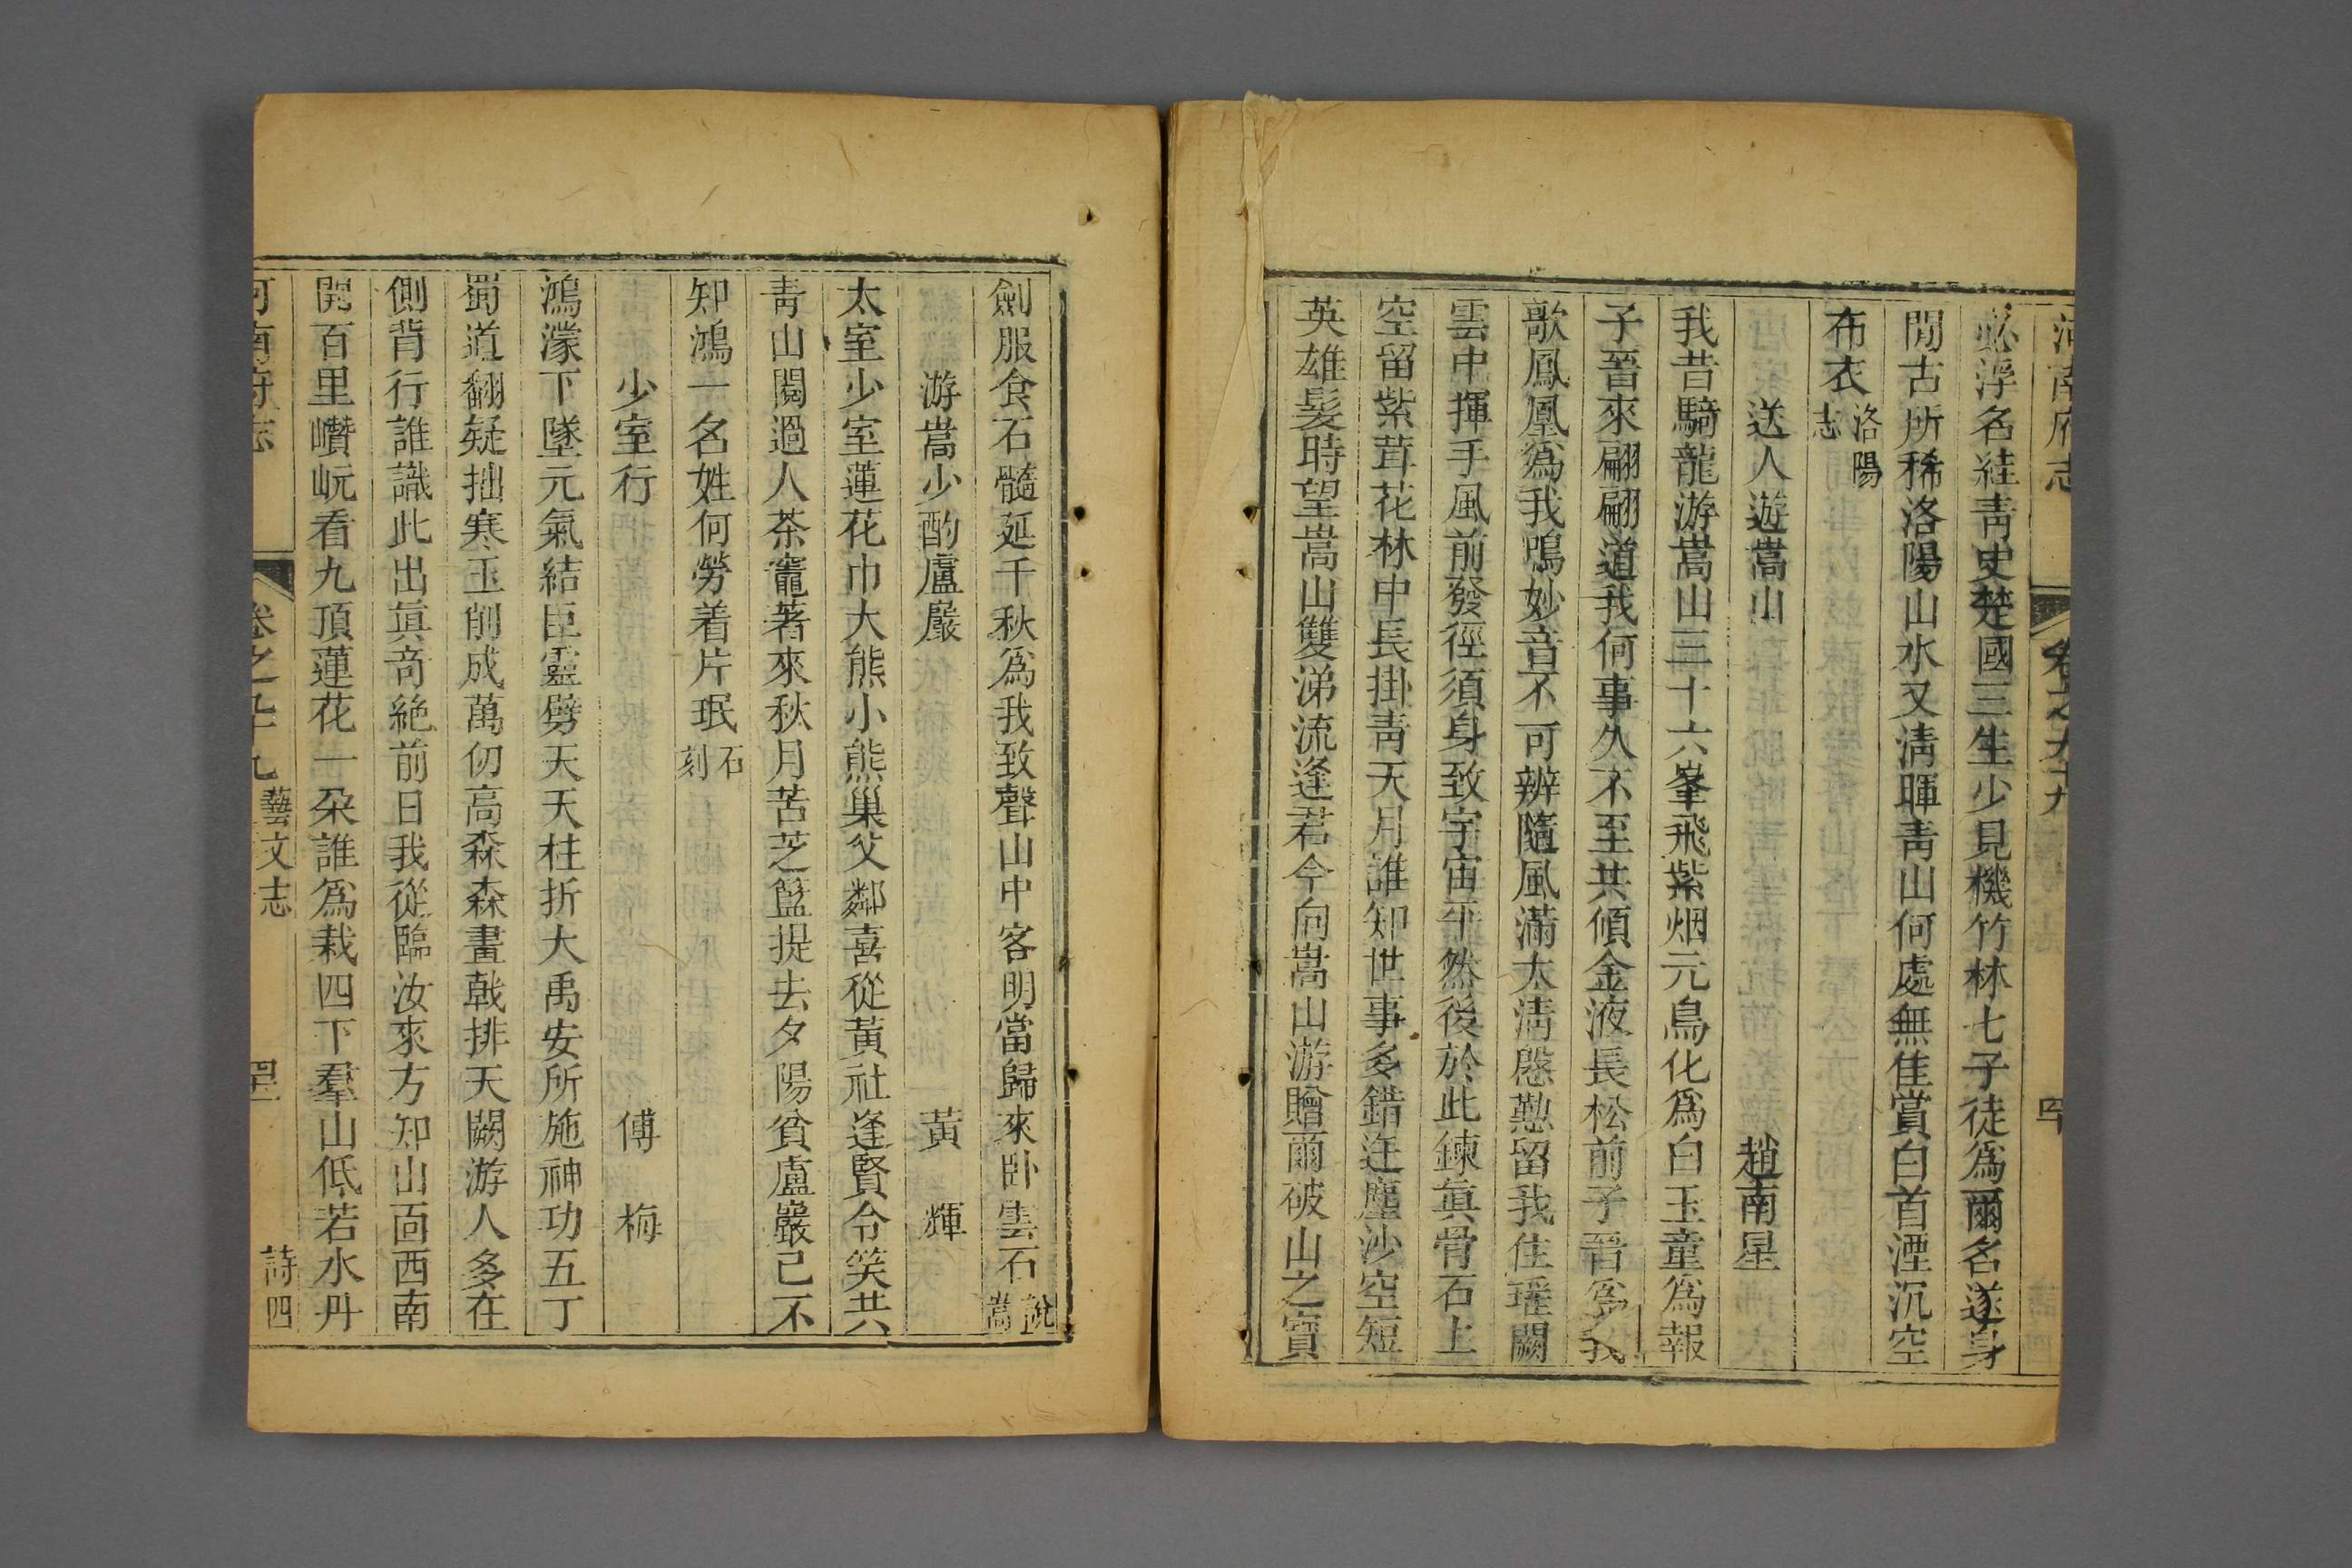 河南府志 卷之九十九
必浮名絓青史楚國三生少見機竹林七子徒為爾名遂身
閒古所稀洛陽山水又清暉青山何處無佳賞白首湮沉空
布衣洛陽志
送人遊嵩山 趙南星
我昔騎龍游嵩山三十六峯飛紫烟元鳥化為白玉童為報
子晉來翩翩道我何事久不至共傾金液長松前子晉為我
歌鳳凰為我鳴妙音不可辨隨風滿太清慇懃留我住瑤闕
雲中揮手風前發徑須身致宇宙平然後於此鍊眞骨石上
空留紫茸花林中長掛青天月誰知世事多錯迕塵沙空短
英雄髮時望嵩山雙涕流逢君今向嵩山游贈爾破山之寶
劍服食石髓延千秋為我致聲山中客明當歸來卧雲石說嵩
游嵩少酌盧巖 黃輝
太室少室蓮花巾大熊小熊巢父鄰喜從黃社逢賢令笑共
青山閱過人茶竈著來秋月苦芝籃提去夕陽貧盧巖已不
知鴻一名姓何勞着片珉石刻
少室行 傅梅
鴻濛下墜元氣結巨靈劈天天柱折大禹安所施神功五丁
蜀道翻疑拙寒玉削成萬仞高森森畫戟排天闕游人多在
側背行誰識此出眞奇絶前日我從臨汝來方知山面西南
開百里巑岏看九頂蓮花一朶誰為栽四下羣山低若水丹
河南府志 卷之 九 藝文志 詩四